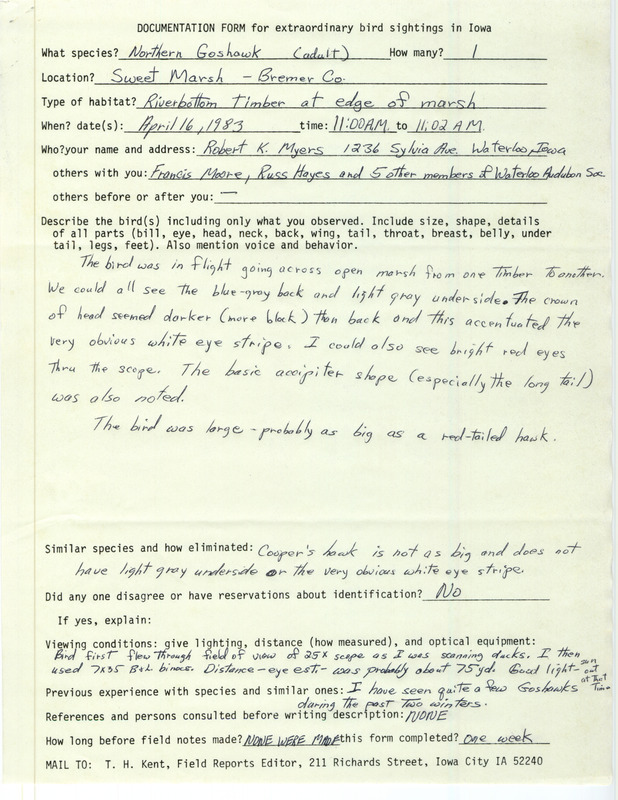 DOCUMENTATION FORM for extraordinary bird sightings in Iowa
What species? Northern Goshawk (adult) How many? 1
Location? Sweet Marsh - Bremer Co.
Type of habitat? Riverbottom Timber at edge of marsh
When? date(s): April 16, 1983 time: 11:00 A.M. to 11:02 A.M.
Who?your name and address: Robert K. Myers 1236 Sylvia Ave. Waterloo, Iowa
others with you: Francis Moore, Russ Hayes and 5 other members of Waterloo Audubon Soc.
others before or after you: —
Describe the bird(s) including only what you observed. Include size, shape, details
of all parts (bill, eye, head, neck, back, wing, tail, throat, breast, belly, under
tail, legs, feet). Also mention voice and behavior.
The bird was in flight going across open marsh from one timber to another.
We could all see the blue-gray back and light gray underside. The crown
of head seemed darker (more black) than back and this accentuated the
very obvious white eye stripe. I could also see bright red eyes
thru the scope. The basic accipiter shape (especially the long tail)
was also noted.
The bird was large - probably as big as a red-tailed hawk.
Similar species and how eliminated: Cooper's hawk is not as big and does not
have light gray underside or the very obvious white eye stripe.
Did any one disagree or have reservations about identification? No
If yes, explain:
Viewing conditions: give lighting, distance (how measured), and optical equipment:
Bird first flew through field of view of 25x scope as I was scanning ducks. I then
used 7x35 B&L binocs. Distance - eye esti- was probably about 75 yd. Good light - sun out at that time
Previous experience with species and similar ones: I have seen quite a few Goshawks
during the past two winters.
References and persons consulted before writing description: NONE
How long before field notes made? NONE WERE MADE this form completed? one week
MAIL TO: T. H. Kent, Field Reports Editor, 211 Richards Street, Iowa City IA 52240